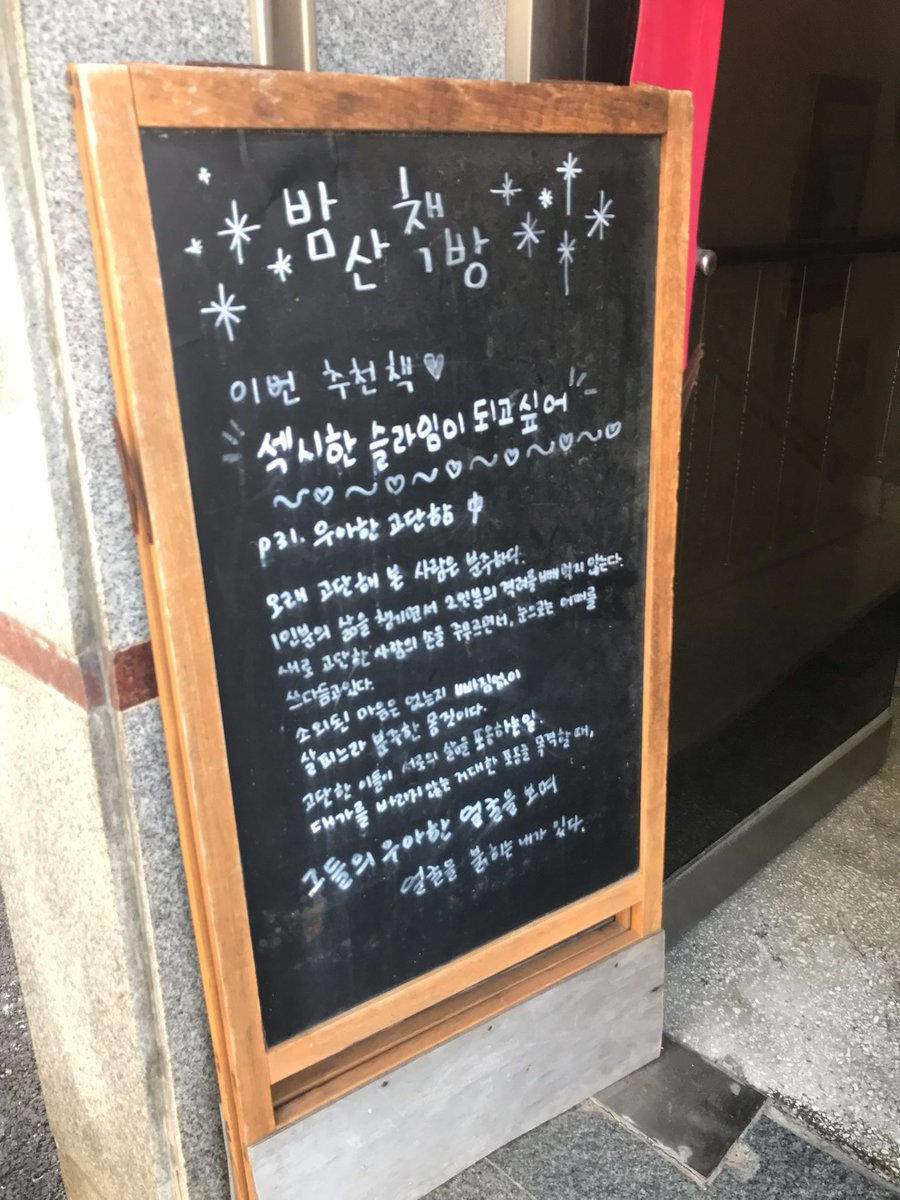 밤산책방
이번 추천책♡
섹시한 슬라임이 되고싶어
p31. 우아한 고단함
오래 고단해 본 사람은 분주하다.
1인분의 삶을 챙기면서 2인분의 격려를 빼먹지 않는다.
새로 고단한 사람의 손을 주무르면서, 눈으로는 어깨를
쓰다듬고있다.
소외된 마음은 없는지 빠짐없이
살피느라 분주한 몸짓이다.
고단한 이들이 서로의 삶을 포옹하는일.
대가를 바라지 않는 거대한 포옹을 목격할 때,
그들의 우아한 얼굴을 보며
얼굴을 붉히는 내가 있다.